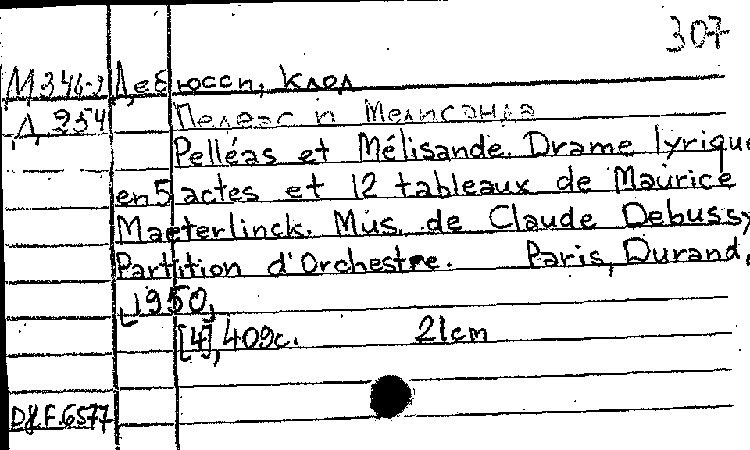 307
М346-3 Дебюсси, Клод
Д 254 Пелеас и Мелисанда
Pelléas et Mélisande. Drame lyrique
en 5 actes et 12 tableaux de Maurice
Maeterlinck. Mus. de Claude Debussy
Partition d'Orchestre. Paris, Durand,
[1950]
[4], 409c. 21cm
D&F.6577